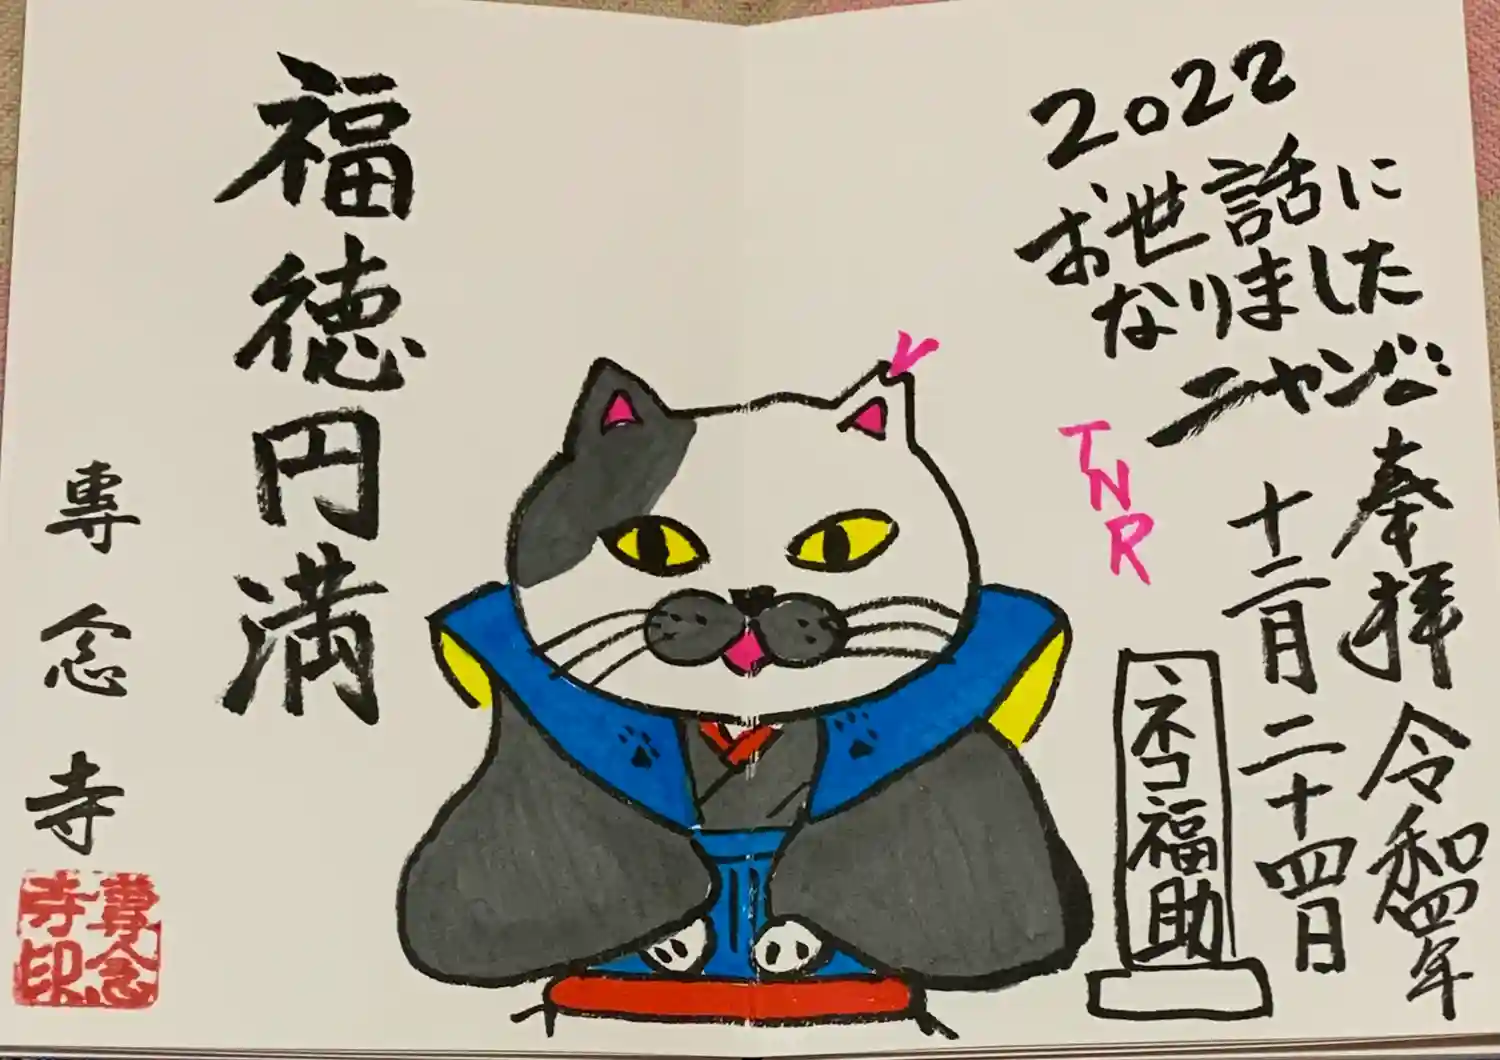 2022
お世話に
なりました
ニャンジ
奉拝 令和四年
十二月二十四日
TNR
ネコ福助
福徳円満
專念寺
專念
寺印